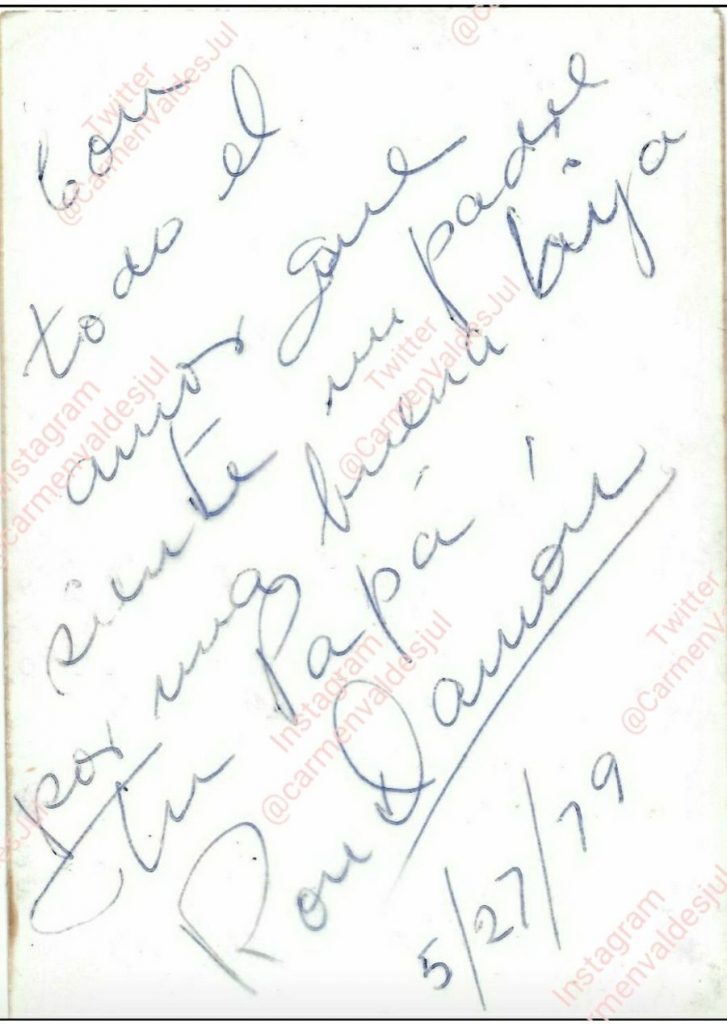 Con
todo el
amor que
siente un padre
por una buena hija
tu Papá
Ron Damón
5/27/79
Twitter
@CarmenValdesJul
Instagram
@Carmenvaldesjul
Twitter
@CarmenValdesJul
Instagram
@Carmenvaldesjul
Twitter
@CarmenValdesJul
Instagram
@Carmenvaldesjul